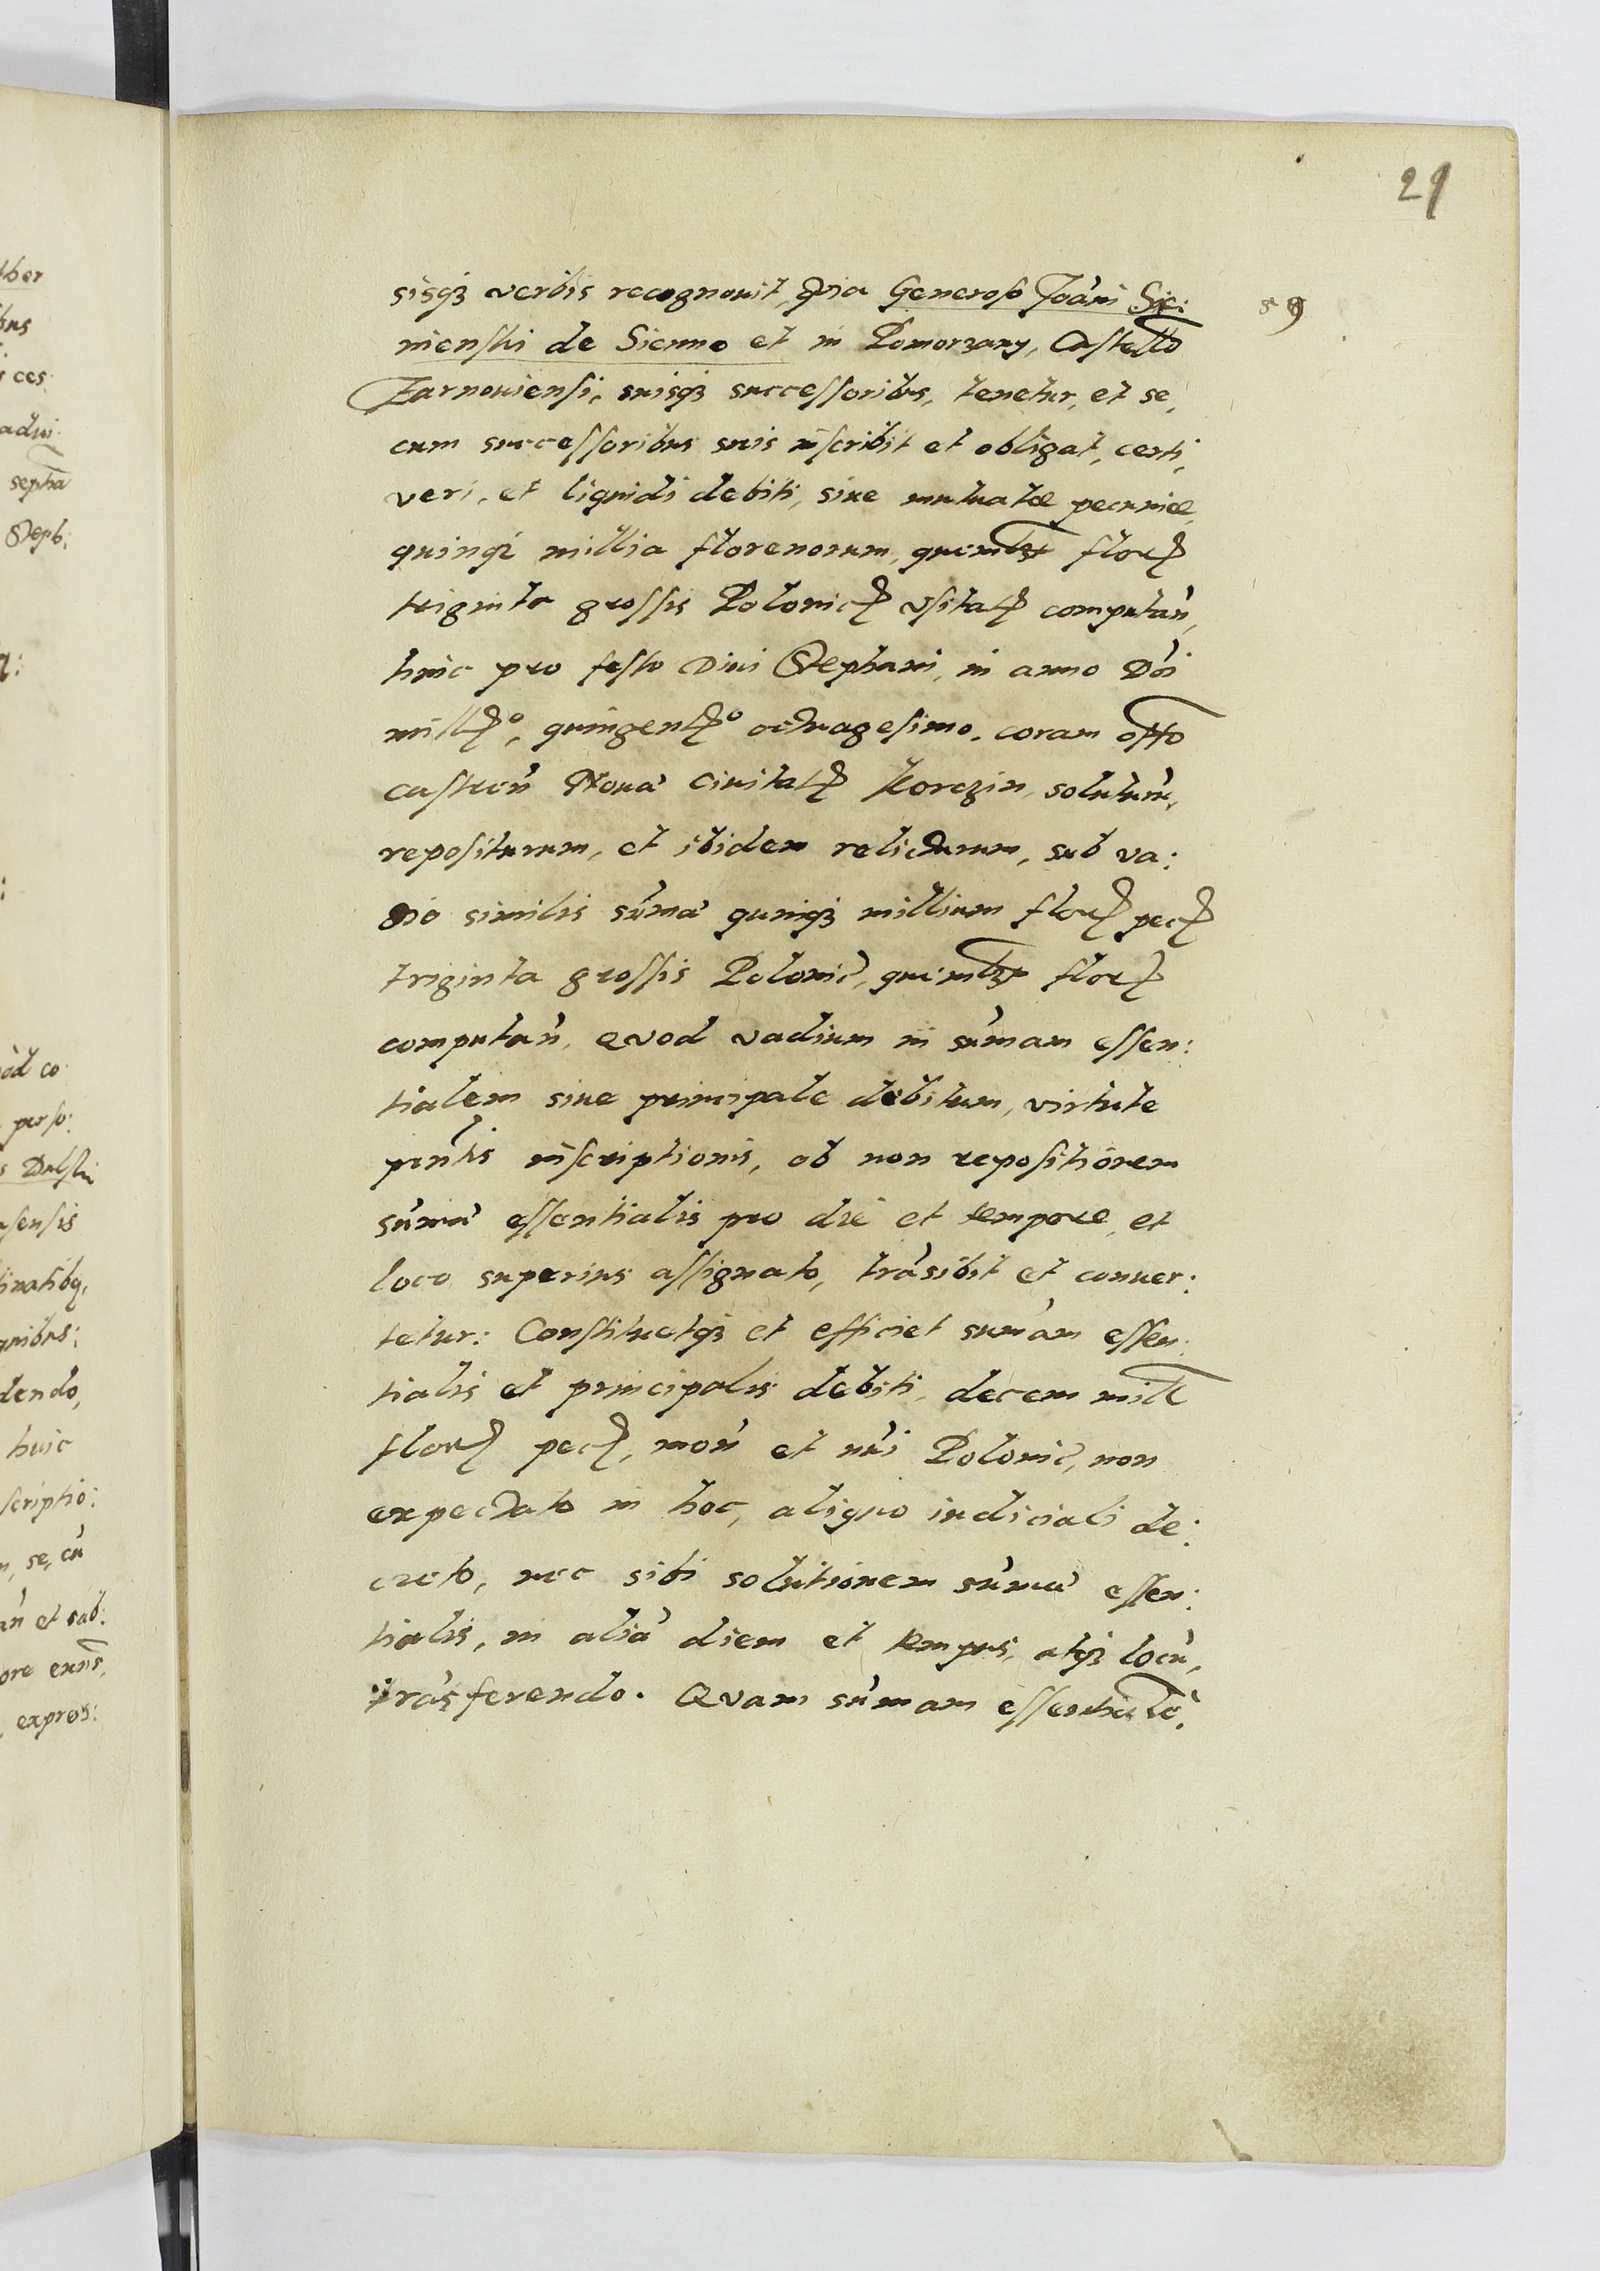 29
59
sisq3 verbis recognouit, quia Generoso Joãni Sie:
nienski de Sienno et in Pomorzany, Castello
Zarnouiensi, suisq3 successoribus, tenetur, et se,
cum successoribus suis inscribit et obligat, certi,
veri, et liquidi debiti, siue mutuatæ pecuniæ,
quinq3 millia florenorum, quemlbt flor
triginta grossis Polonic vsitat computañ,
hinc pro festo Diui Stephani, in anno Dñi
mill°, quingent° octuagesimo, coram offo
castreñ Nouã Ciuitat Korczin, solutuũ,
repositurum, et ibidem relicturum, sub va:
dio similis sũmã quinq3 millium flor pec
triginta grossis Polonic, quemlbt flor
computañ, Quod vadium in sũmam essen:
tialem siue principale debitum, virtute
pñtis inscriptionis, ob non repositionem
sũmã essentialis pro die et tempore, et
loco superius assignato, trãsibit et conuer:
tetur: Constituetq3 et efficiet sumãm essen:
tialis et principalis debiti, decem mill
flor pec, moñ et nũi Polonic, non
expectato in hoc, aliquo iudiciali de:
creto, nec sibi solutionem sũmã essen:
tialis, in aliã diem et tempus, atq3 locũ,
trãsferendo. Quam sũmam essentialẽ,
ther
bus
ces
adui:
septha
Steph:
ad co
perso:
s Dulski
nsensis
tinatibq,
gnibus:
dendo,
huic
scriptio:
se, cũ
añ et sub:
ore exñs,
expres: